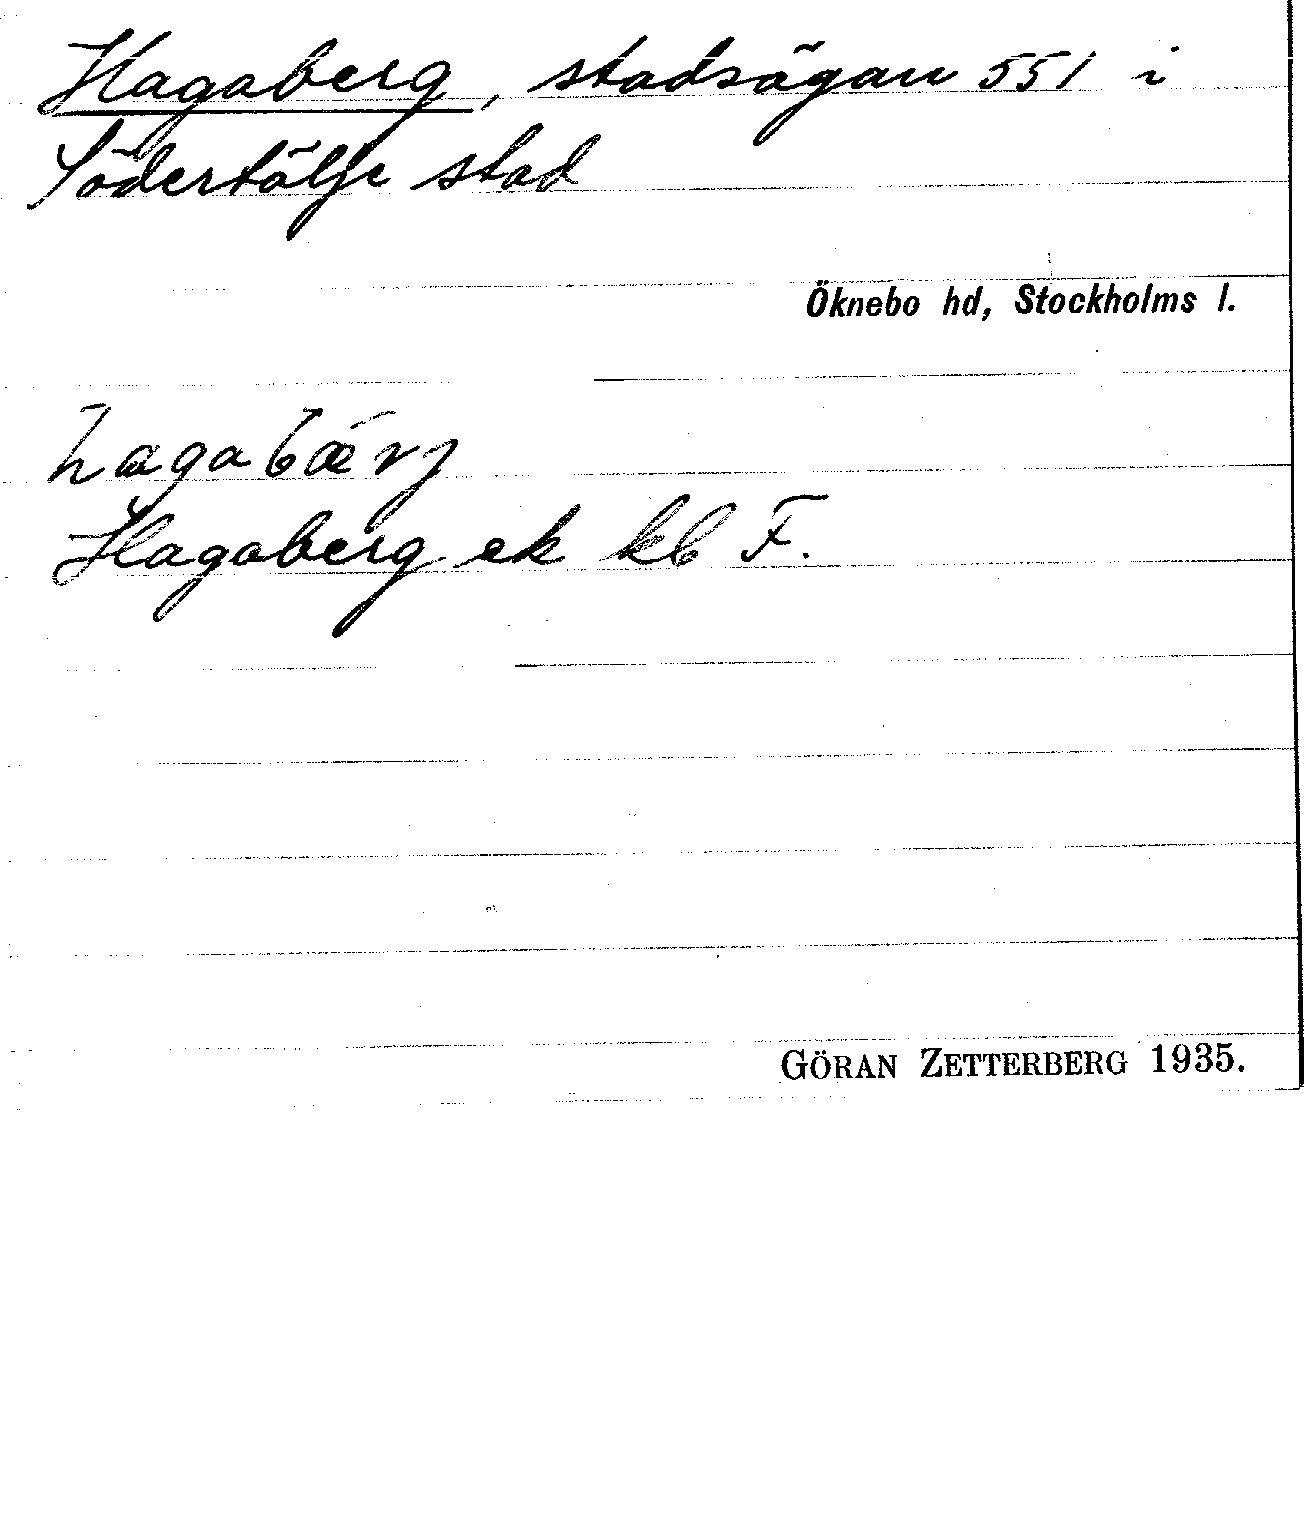 Hagaberg, stadsägan 551 i
Södertälje stad
Öknebo hd, Stockholms l.
hagabǽrj
Hagaberg ek kb F.
GÖRAN ZETTERBERG 1935.